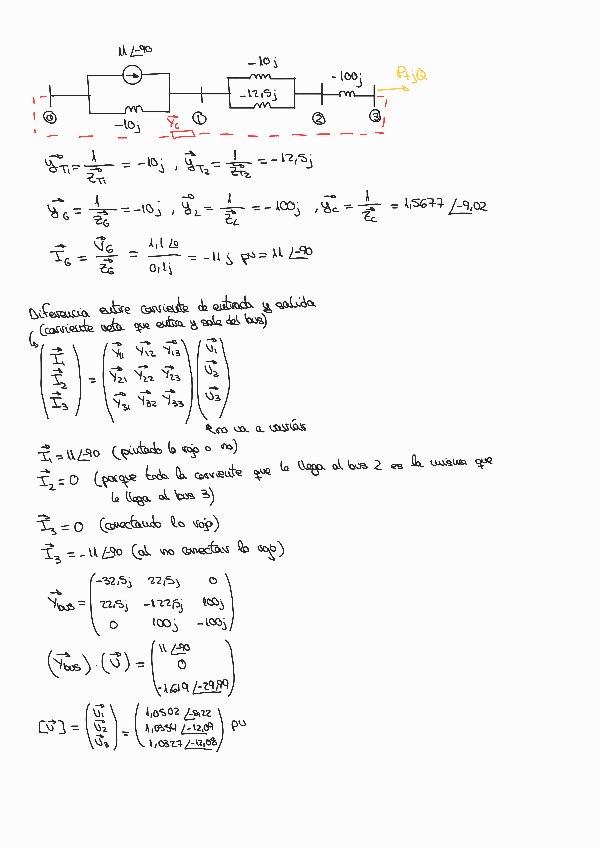 11∠-90
-10j
-12,5j
-100j
P+jQ
-10j
Y⃗c
0 1 2 3
y⃗T1 = 1/Z⃗T1 = -10j , y⃗T2 = 1/Z⃗T2 = -12,5j
y⃗G = 1/Z⃗G = -10j , y⃗L = 1/Z⃗L = -100j , y⃗c = 1/Z⃗c = 1,5677 ∠-9,02
I⃗G = U⃗G/Z⃗G = 1,1∠0/0,1j = -11j pu = 11∠-90
Diferencia entre corriente de entrada y salida
(corriente neta que entra y sale del bus)
(I⃗1 I⃗2 I⃗3) = (Y⃗11 Y⃗12 Y⃗13 Y⃗21 Y⃗22 Y⃗23 Y⃗31 Y⃗32 Y⃗33) (U⃗1 U⃗2 U⃗3)
no va a variar
I⃗1 = 11∠-90 (pintado lo rojo o no)
I⃗2 = 0 (porque toda la corriente que le llega al bus 2 es la misma que
le llega al bus 3)
I⃗3 = 0 (conectando lo rojo)
I⃗3 = -11∠-90 (al no conectar lo rojo)
Y⃗bus = (-32,5j 22,5j 0
22,5j -122,5j 100j
0 100j -100j)
(Y⃗bus) · (U⃗) = (11∠-90
0
-1,619∠-29,99)
[U⃗] = (U⃗1 U⃗2 U⃗3) = (1,0502∠-8,22
1,0354∠-12,09
1,0327∠-12,08) pu